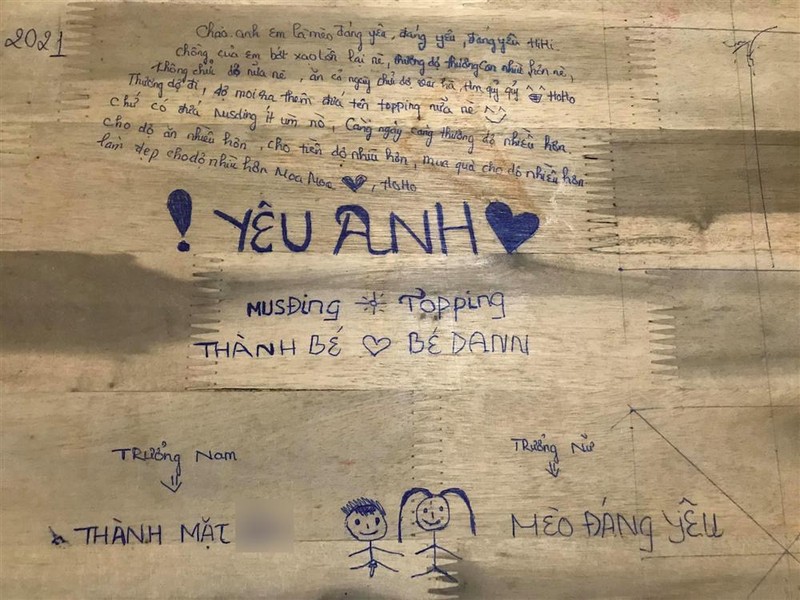 2021
Chào anh em là mèo đáng yêu, đáng yêu, đáng yêu HiHi.
chồng của em bớt xao lồn lại nè, thương độ thương con nhiều hơn nè,
không chửi độ nữa nè, ăn có ngày chửi độ hà, Hm quỷ quỷ HoHo
Thương độ đi, độ mới ra thêm đứa tên topping nữa nè
chứ có đứa Musding ít um nò, Càng ngày càng thương độ nhiều hơn,
cho độ ăn nhiều hơn, cho tiền độ nhiều hơn, mua quà cho độ nhiều hơn
làm đẹp cho độ nhiều hơn Moa Moa, HoHo
! YÊU ANH
MUSĐing Topping
THÀNH BÉ BÉ DANN
TRưởng Nam TRưởng Nữ
THÀNH MẶT MÈO ĐÁNG YÊU